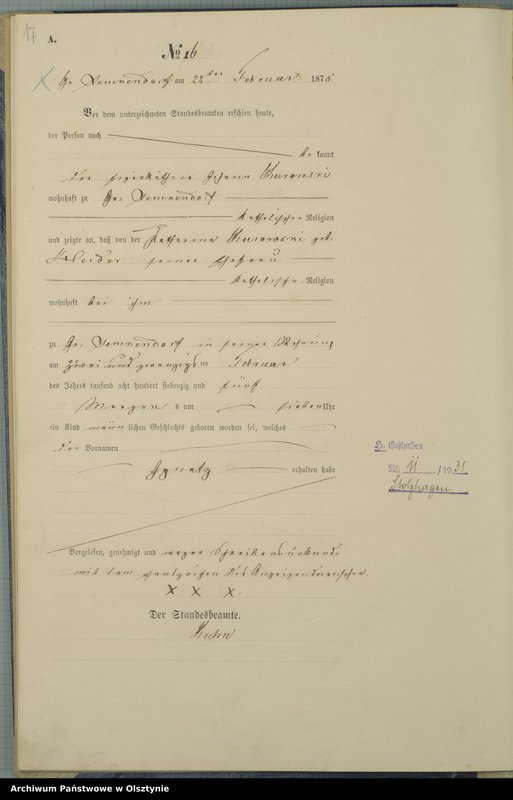 17
A.
No 16
Gr. Lemkendorf am 22ten Februar 1875
Vor dem unterzeichneten Standesbeamten erschien heute,
der Person nach
be kannt
der Johann Kurowski
wohnhaft zu Gr. Lemkendorf
katholischer Religion
und zeigte an, daß von der Katharina Kurowski geb.
seiner Ehefrau
katholischer Religion
wohnhaft bei ihm
zu Gr. Lemkendorf in seiner Wohnung
am zwei und zwanzigsten Februar
des Jahres tausend acht hundert siebenzig und fünf
Morgens um sieben Uhr
ein Kind männlichen Geschlechts geboren worden sei, welches
den Vornamen
Ignatz erhalten habe
Gestorben
Nr. 11 /1931
Stolzhagen
Vorgelesen, genehmigt und wegen Schreibensunkunde
mit dem Handzeichen des Anzeigenden versehen.
X X X.
Der Standesbeamte.
Archiwum Państwowe w Olsztynie